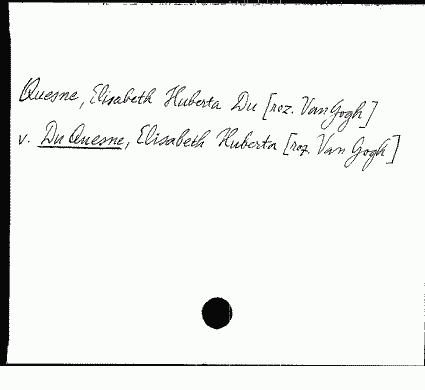 Quesne, Elisabeth Huberta Du [roz. Van Gogh]
v. Du Quesne, Elisabeth Huberta [roz. Van Gogh]